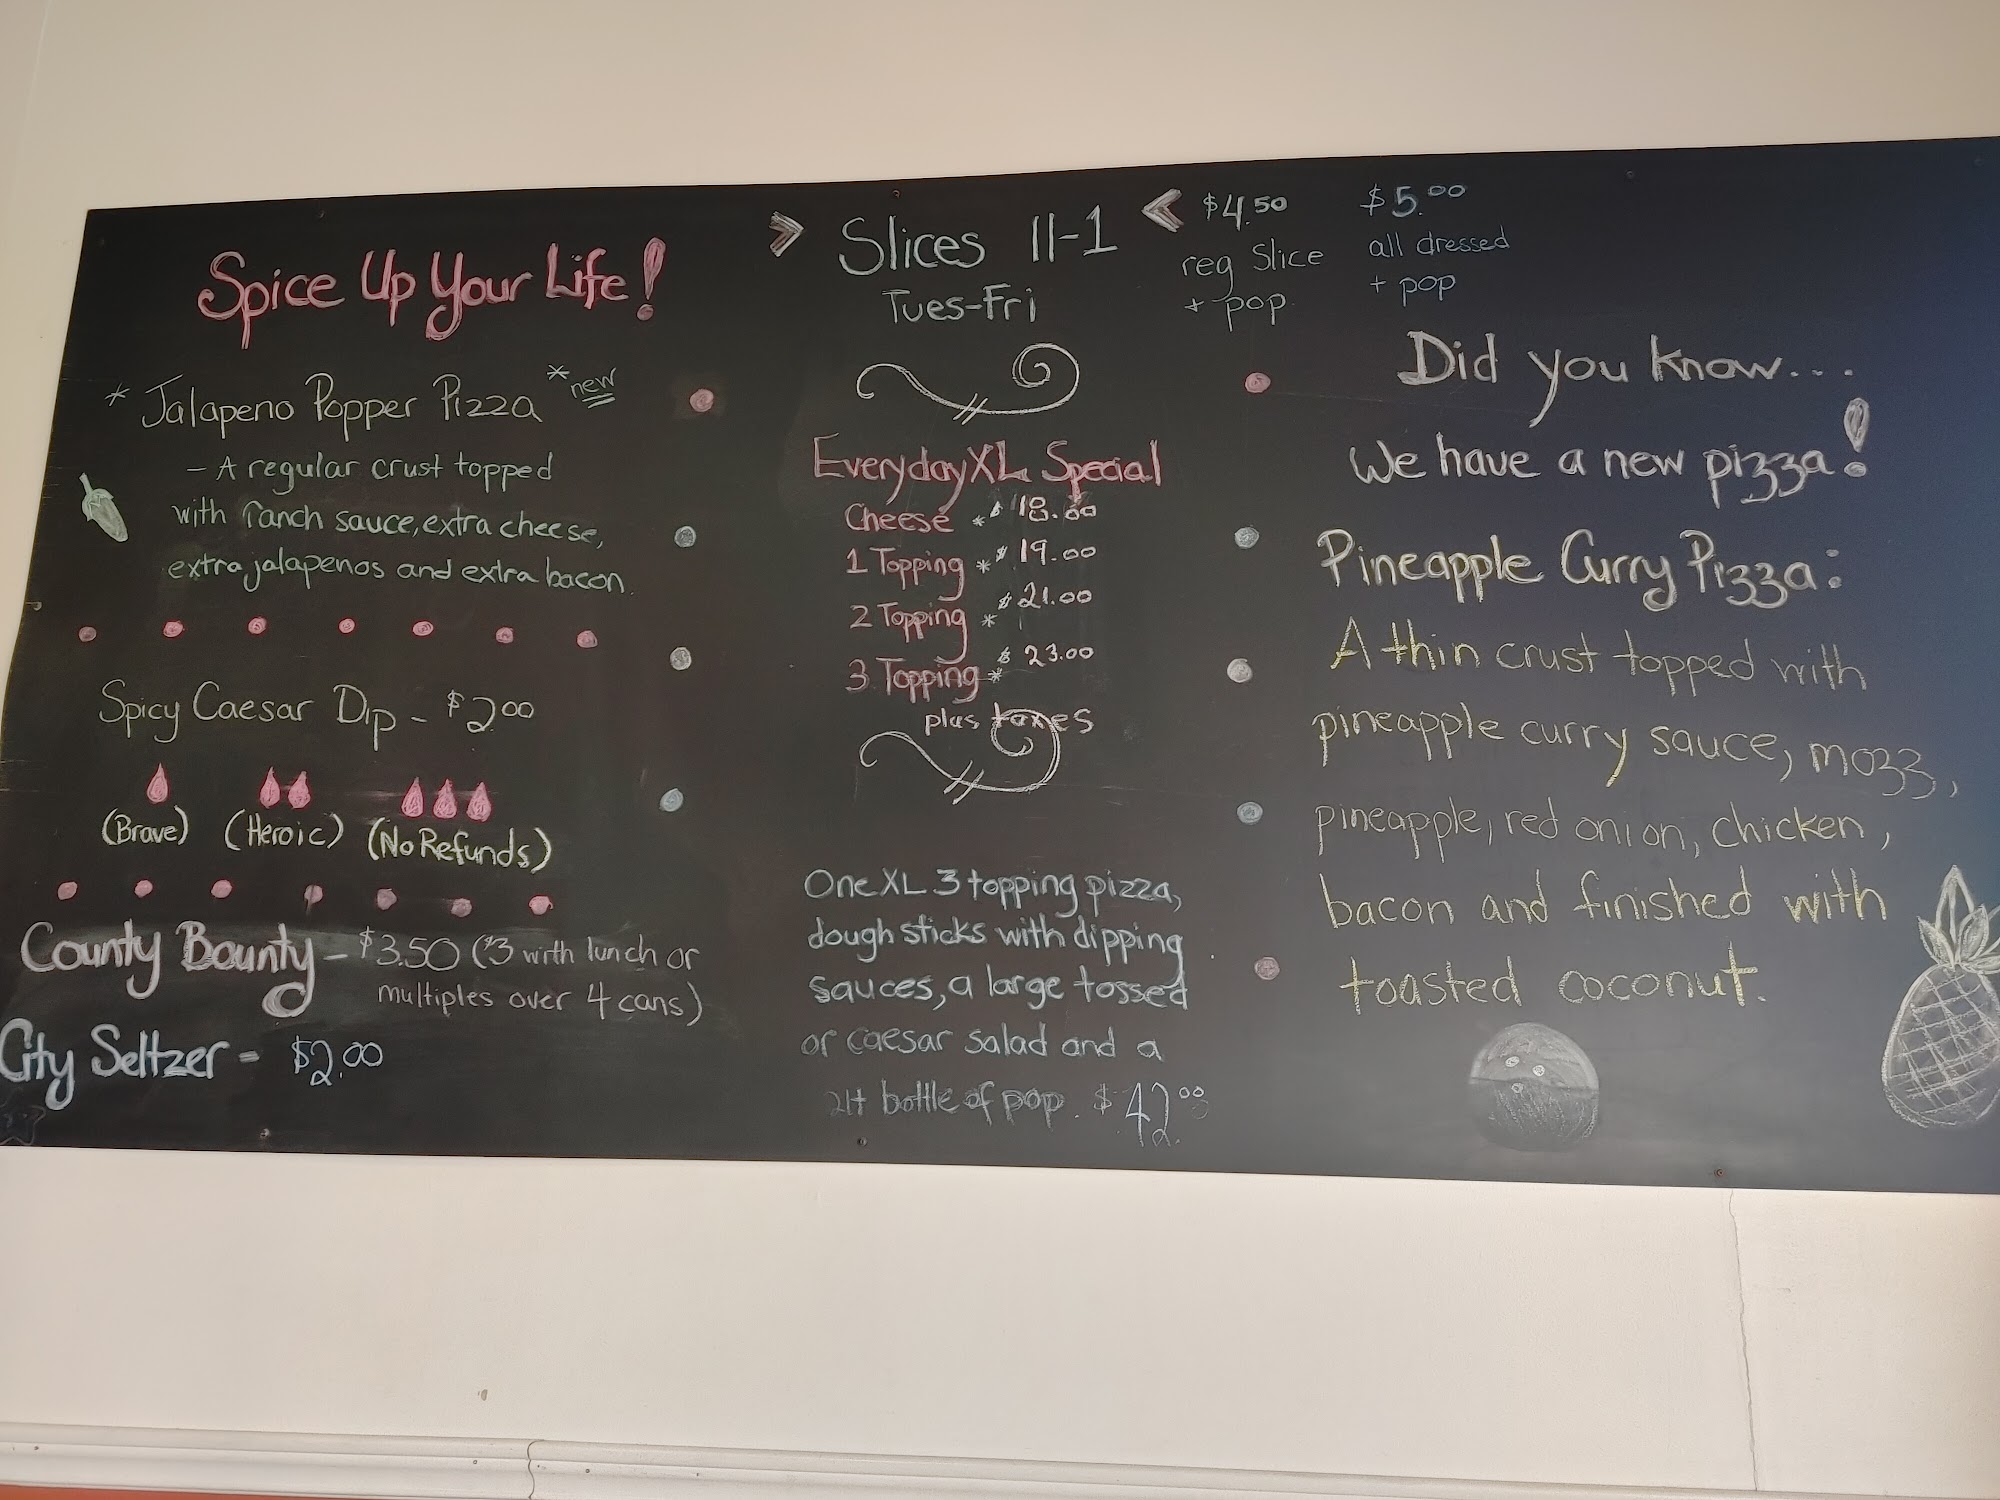 Spice Up Your Life!
* Jalapeno Popper Pizza * new
- A regular crust topped
with ranch sauce, extra cheese,
extra jalapenos and extra bacon.
Spicy Caesar Dip - $2.00
(Brave) (Heroic) (No Refunds)
County Bounty - $3.50 ($3 with lunch or
multiples over 4 cans)
City Seltzer - $2.00
> Slices 11-1 <
Tues-Fri
$4.50
reg Slice
+ pop
$5.00
all dressed
+ pop
Everyday XL Special
Cheese * $18.00
1 Topping * $19.00
2 Topping * $21.00
3 Topping * $23.00
plus taxes
One XL 3 topping pizza,
dough sticks with dipping
sauces, a large tossed
or caesar salad and a
2lt bottle of pop. $42.00
Did you know...
We have a new pizza!
Pineapple Curry Pizza:
A thin crust topped with
pineapple curry sauce, mozz,
pineapple, red onion, chicken,
bacon and finished with
toasted coconut.